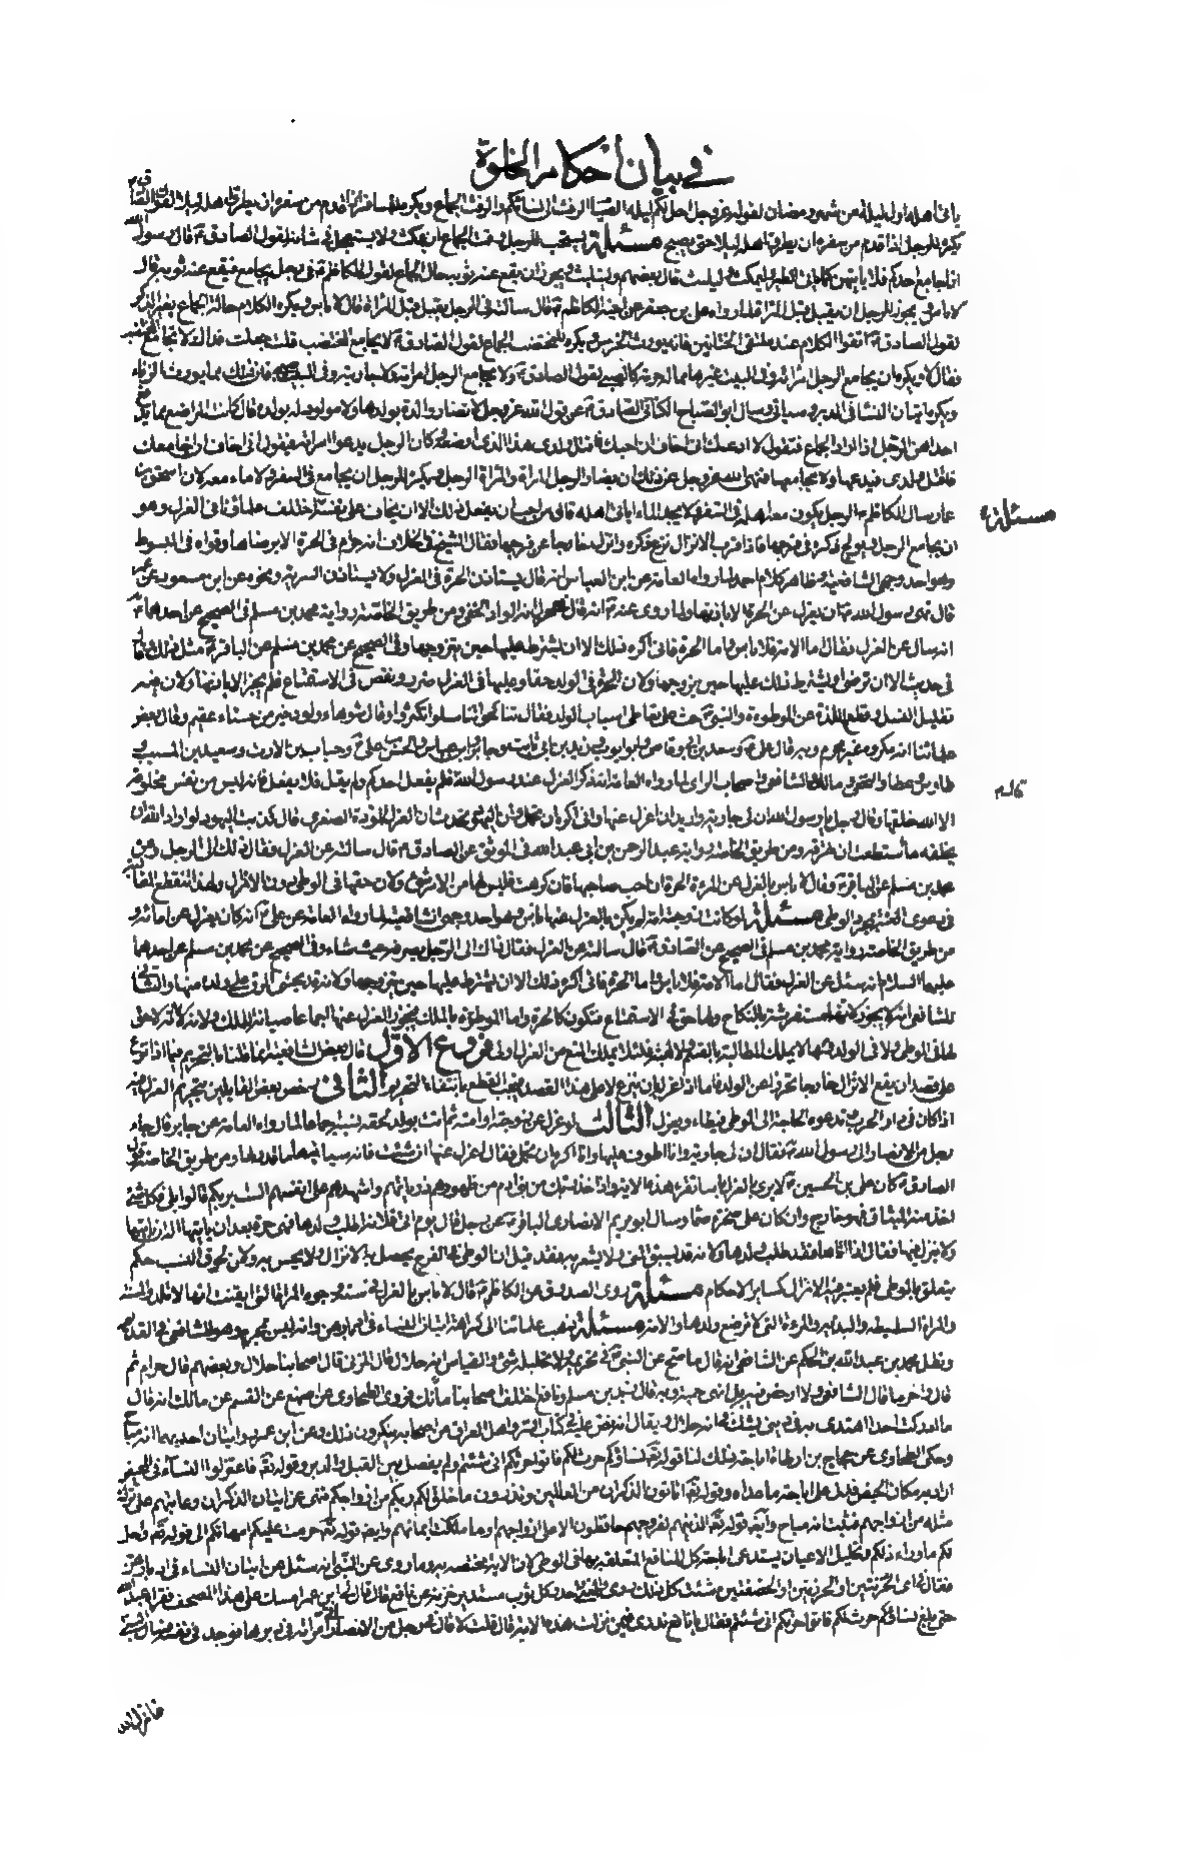 في بيان أحكام الخلوة
يأتي أهله أول ليلة من شهر رمضان لقوله عز وجل أحل لكم ليلة الصيام الرفث إلى نسائكم والرفث الجماع ويكره
يكره للرجل إذا قدم من سفره أن يطرق أهله ليلا حتى يصبح مسئلة يستحب للرجل وقت الجماع أن يمكث ولا يستعجل لقول الصادق ع قال رسول الله
إذا جامع أحدكم فلا يأتيهن كما يأتي الطير ليمكث وليلبث قال بعضهم وليلبث
لا بأس ويجوز للرجل أن يقبل قبل المرأة لما رواه علي بن جعفر عن أخيه الكاظم ع قال سألته عن الرجل يقبل قبل المرأة قال لا بأس ويكره الكلام حالة الجماع بغير الذكر
لقول الصادق ع اتقوا الكلام عند ملتقى الختانين فإنه يورث الخرس ويكره للمختضب الجماع لقول الصادق ع لا يجامع المختضب قلت جعلت فداك لا يجامع المختضب
فقال لا ويكره أن يجامع الرجل امرأته وفي البيت غيرهما
ويكره إتيان النساء في الدبر وسيأتي وسأل أبو الصباح الكناني الصادق ع عن قول الله عز وجل لا تضار والدة بولدها ولا مولود له بولده قال كانت المراضع مما يدفع
إحداهن الرجل إذا أراد الجماع فتقول لا أدعك إني أخاف أن أحبل فأقتل ولدي هذا الذي أرضعه وكان الرجل يدعو امرأته فيقول إني أخاف إن أجامعك
فأقتل ولدي فيدعها ولا يجامعها فنهى الله عز وجل عن ذلك أن يضار الرجل المرأة والمرأة الرجل ويكره للرجل أن يجامع في السفر ولا ماء معه لأن إسحق بن
عمار سأل الكاظم ع الرجل يكون معه أهله في السفر لا يجد الماء يأتي أهله قال ما أحب أن يفعل ذلك إلا أن يخاف على نفسه
مسئلة اختلف علماؤنا في العزل وهو
أن يجامع الرجل فيولج ذكره في فرجها فإذا قرب الإنزال نزع ذكره وأنزل خارجا عن فرجها فقال الشيخ في الخلاف إنه حرام في الحرة إلا برضاها وقواه في المبسوط
وهو أحد وجهي الشافعية وظاهر كلام أحمد لما رواه العامة عن ابن العباس أنه قال يستأذن الحرة في العزل ولا يستأذن السرية ونحوه عن ابن مسعود وعن عمر
قال نهى رسول الله ص أن يعزل عن الحرة إلا بإذنها ولما روي عنه ع أنه قال في العزل إنه الوأد الخفي ومن طريق الخاصة رواية محمد بن مسلم في الصحيح عن أحدهما ع
أنه سأل عن العزل فقال أما الأمة فلا بأس وأما الحرة فإني أكره ذلك إلا أن يشترط عليها حين يتزوجها وفي الصحيح عن محمد بن مسلم عن الباقر ع مثل ذلك وقال
في حديثه إلا أن ترضى أو يشترط ذلك عليها حين يتزوجها ولأن للحرة في الولد حقا وعليها في العزل ضرر ونقص في الاستمتاع فلم يجز إلا بإذنها ولأن فيه
تقليل النسل وقطع اللذة عن الموطوءة والنبي ص حث على تعاطي أسباب الولد فقال تناكحوا تناسلوا تكثروا وقال سوداء ولود خير من حسناء عقيم وقال بعض
علمائنا أنه مكروه غير محرم وبه قال علي ع وسعد بن أبي وقاص وأبو أيوب وزيد بن ثابت وجابر وابن عباس والحسن بن علي ع وخباب بن الأرت وسعيد بن المسيب و
طاوس وعطاء والنخعي ومالك والشافعي وأصحاب الرأي لما رواه العامة أنه ذكر العزل عند رسول الله ص فلم يفعل أحدكم ولم يقل فلا يفعل فإنه ليس من نفس مخلوقة
إلا الله خالقها وقال رجل يا رسول الله إن لي جارية وأنا أعزل عنها وأنا أكره أن تحمل وإن اليهود تحدث أن العزل الموؤدة الصغرى قال كذبت اليهود لو أراد الله أن
يخلقه ما استطعت أن تصرفه ومن طريق الخاصة رواية عبد الرحمن بن أبي عبد الله في الموثق عن الصادق ع قال سألته عن العزل فقال ذاك إلى الرجل وعن
محمد بن مسلم عن الباقر ع قال لا بأس بالعزل عن المرأة الحرة إن أحب صاحبها فإن كرهت فليس لها من الأمر شيء ولأن حقها في الوطي دون الإنزال
في دعوى العنة بمجرد الوطي مسئلة لو كانت زوجته أمة لم يكن بالعزل عنها بأس وهو أحد وجهي الشافعية لما رواه العامة عن علي ع أنه كان يعزل عن إمائه و
من طريق الخاصة رواية محمد بن مسلم في الصحيح عن الصادق ع قال سألته عن العزل فقال ذاك إلى الرجل يصرفه حيث شاء وفي الصحيح عن محمد بن مسلم عن أحدهما
عليهما السلام أنه سئل عن العزل فقال أما الأمة فلا بأس وأما الحرة فإني أكره ذلك إلا أن يشترط عليها حين يتزوجها ولأنه قد يخشى الرق على ولده منها
للشافعي أنه لا يجوز لأنها مستفرشة بالنكاح ولها حق في الاستمتاع فتكون كالحرة وأما الموطوءة بالملك فيجوز العزل عنها إجماعا صيانة للملك ولأنه
لها في الوطي ولا في الولد ولأنها لا يملك المطالبة بالقسم فلئلا يملك المنع من العزل أولى فروع الأول قال بعض الشافعية إنما قلنا بالتحريم فيما إذا نزع
على قصد أن يقع الإنزال خارجا تحرزا عن الولد فأما إذا عن له أن ينزع لا على هذا القصد فيجب القطع بانتفاء التحريم الثاني خص بعض القائلين بتحريم العزل فيه
إذا كان في دار الحرب فتدعوه الحاجة إلى الوطي فيطأ ويعزل الثالث لو عزل عن زوجته أو أمته ثم أتت بولد لحقه نسبه إجماعا لما رواه العامة عن جابر قال جاء
رجل من الأنصار إلى رسول الله ص فقال إن لي جارية وأنا أطوف عليها وأنا أكره أن تحمل فقال اعزل عنها إن شئت فإنه سيأتيها ما قدر لها ومن طريق الخاصة قول
الصادق ع كان علي بن الحسين ع لا يرى بالعزل بأسا تقرأ هذه الآية وإذ أخذ ربك من بني آدم من ظهورهم ذرياتهم وأشهدهم على أنفسهم ألست بربكم قالوا بلى فكل شيء
أخذ منه الميثاق فهو خارج وإن كان على صخرة صماء وسأل أبو مريم الأنصاري الباقر ع عن رجل قال يوم آتي فلانة أطلب ولدها فهي حرة بعد أن يأتيها أله أن يأتيها
ولا ينزل فيها فقال إذا أتاها فقد طلب ولدها ولأنه قد يسبق المني ولا يشعر به فقد قيل إن الوطي في الفرج يحصل به الإنزال ولا يحس به ولأن لحوق النسب حكم
يتعلق بالوطي فلم يعتبر فيه الإنزال كسائر الأحكام مسئلة روى الصدوق عن الكاظم ع قال لا بأس بالعزل في ستة وجوه المرأة التي أيقنت أنها لا تلد والمسنة
والمرأة السليطة والبذية والمرأة التي لا ترضع ولدها والأمة مسئلة ذهب علماؤنا إلى كراهة إتيان النساء في أدبارهن وأنه ليس بمحرم وهو
ونقل محمد بن عبد الله بن الحكم عن الشافعي أنه قال ما صح عن النبي ص في تحريمه ولا تحليله شيء والقياس أنه حلال قال المزني قال أصحابنا حلال وبعضهم قال حرام ثم
قال وآخر ما قال الشافعي ولا أرخص فيه بل أنهى عنه وبه قال زيد بن أسلم ونافع اختلف أصحابنا مالك فروى الطحاوي عن أصبغ عن القسم عن مالك أنه قال
ما أدركت أحدا اقتدى به في ديني يشك في أنه حلال ويقال إنه نص عليه في كتاب السر وأهل العراق من أصحابه ينكرون ذلك وعن ابن عمر روايتان إحديهما أنه مباح
وحكى الطحاوي عن حجاج بن أرطاة إباحته ذلك لنا قوله تعالى نساؤكم حرث لكم فأتوا حرثكم أنى شئتم ولم يفصل بين القبل والدبر وقوله تعالى فاعتزلوا النساء في المحيض
أراد به مكان الحيض فدل على إباحة ما عداه وقوله تعالى أتأتون الذكران من العالمين وتذرون ما خلق لكم ربكم من أزواجكم فنهى عن إتيان الذكران وعاتبهم على ترك
مثله من أزواجهم فثبت أنه مباح وأيضا قوله تعالى الذين هم لفروجهم حافظون إلا على أزواجهم أو ما ملكت أيمانهم وأيضا قوله تعالى حرمت عليكم أمهاتكم إلى قوله تعالى وأحل
لكم ما وراء ذلكم وتحليل الأعيان يستدعي إباحة كل المنافع المتعلقة بها
فقال
حتى بلغ نساؤكم حرث لكم فأتوا حرثكم أنى شئتم فقال يا نافع تدري فيمن نزلت هذه الآية قال قلت لا قال في رجل من الأنصار أتى امرأته في دبرها فوجد في نفسه فسأل النبي ص
فأنزل الله